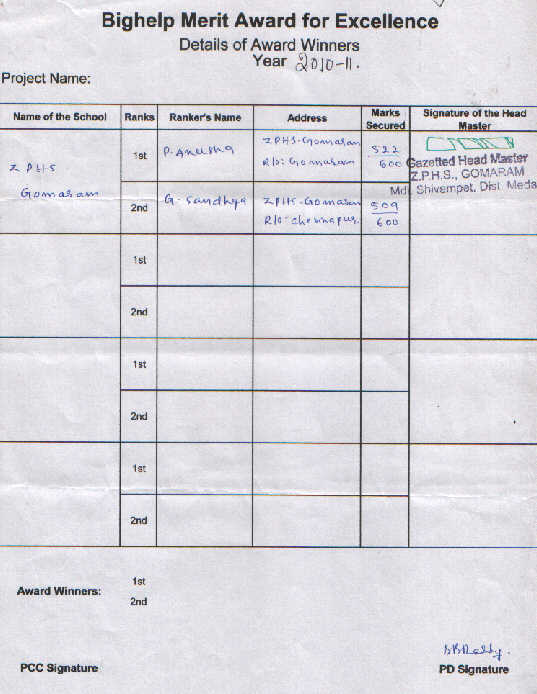 Bighelp Merit Award for Excellence
Details of Award Winners
Year 2010-11.
Project Name:
Name of the School Ranks Ranker's Name Address Marks Secured Signature of the Head Master
Z PHS
Gomaram
1st P. Anusha ZPHS-Gomaram 522
R/o: Gomaram 600
Gazetted Head Master
Z.P.H.S., GOMARAM
Mdl. Shivempet, Dist. Meda
2nd G. Sandhya ZPHS-Gomaram 509
R/o- Chennapur 600
1st
2nd
1st
2nd
1st
2nd
Award Winners: 1st
2nd
PCC Signature
PD Signature